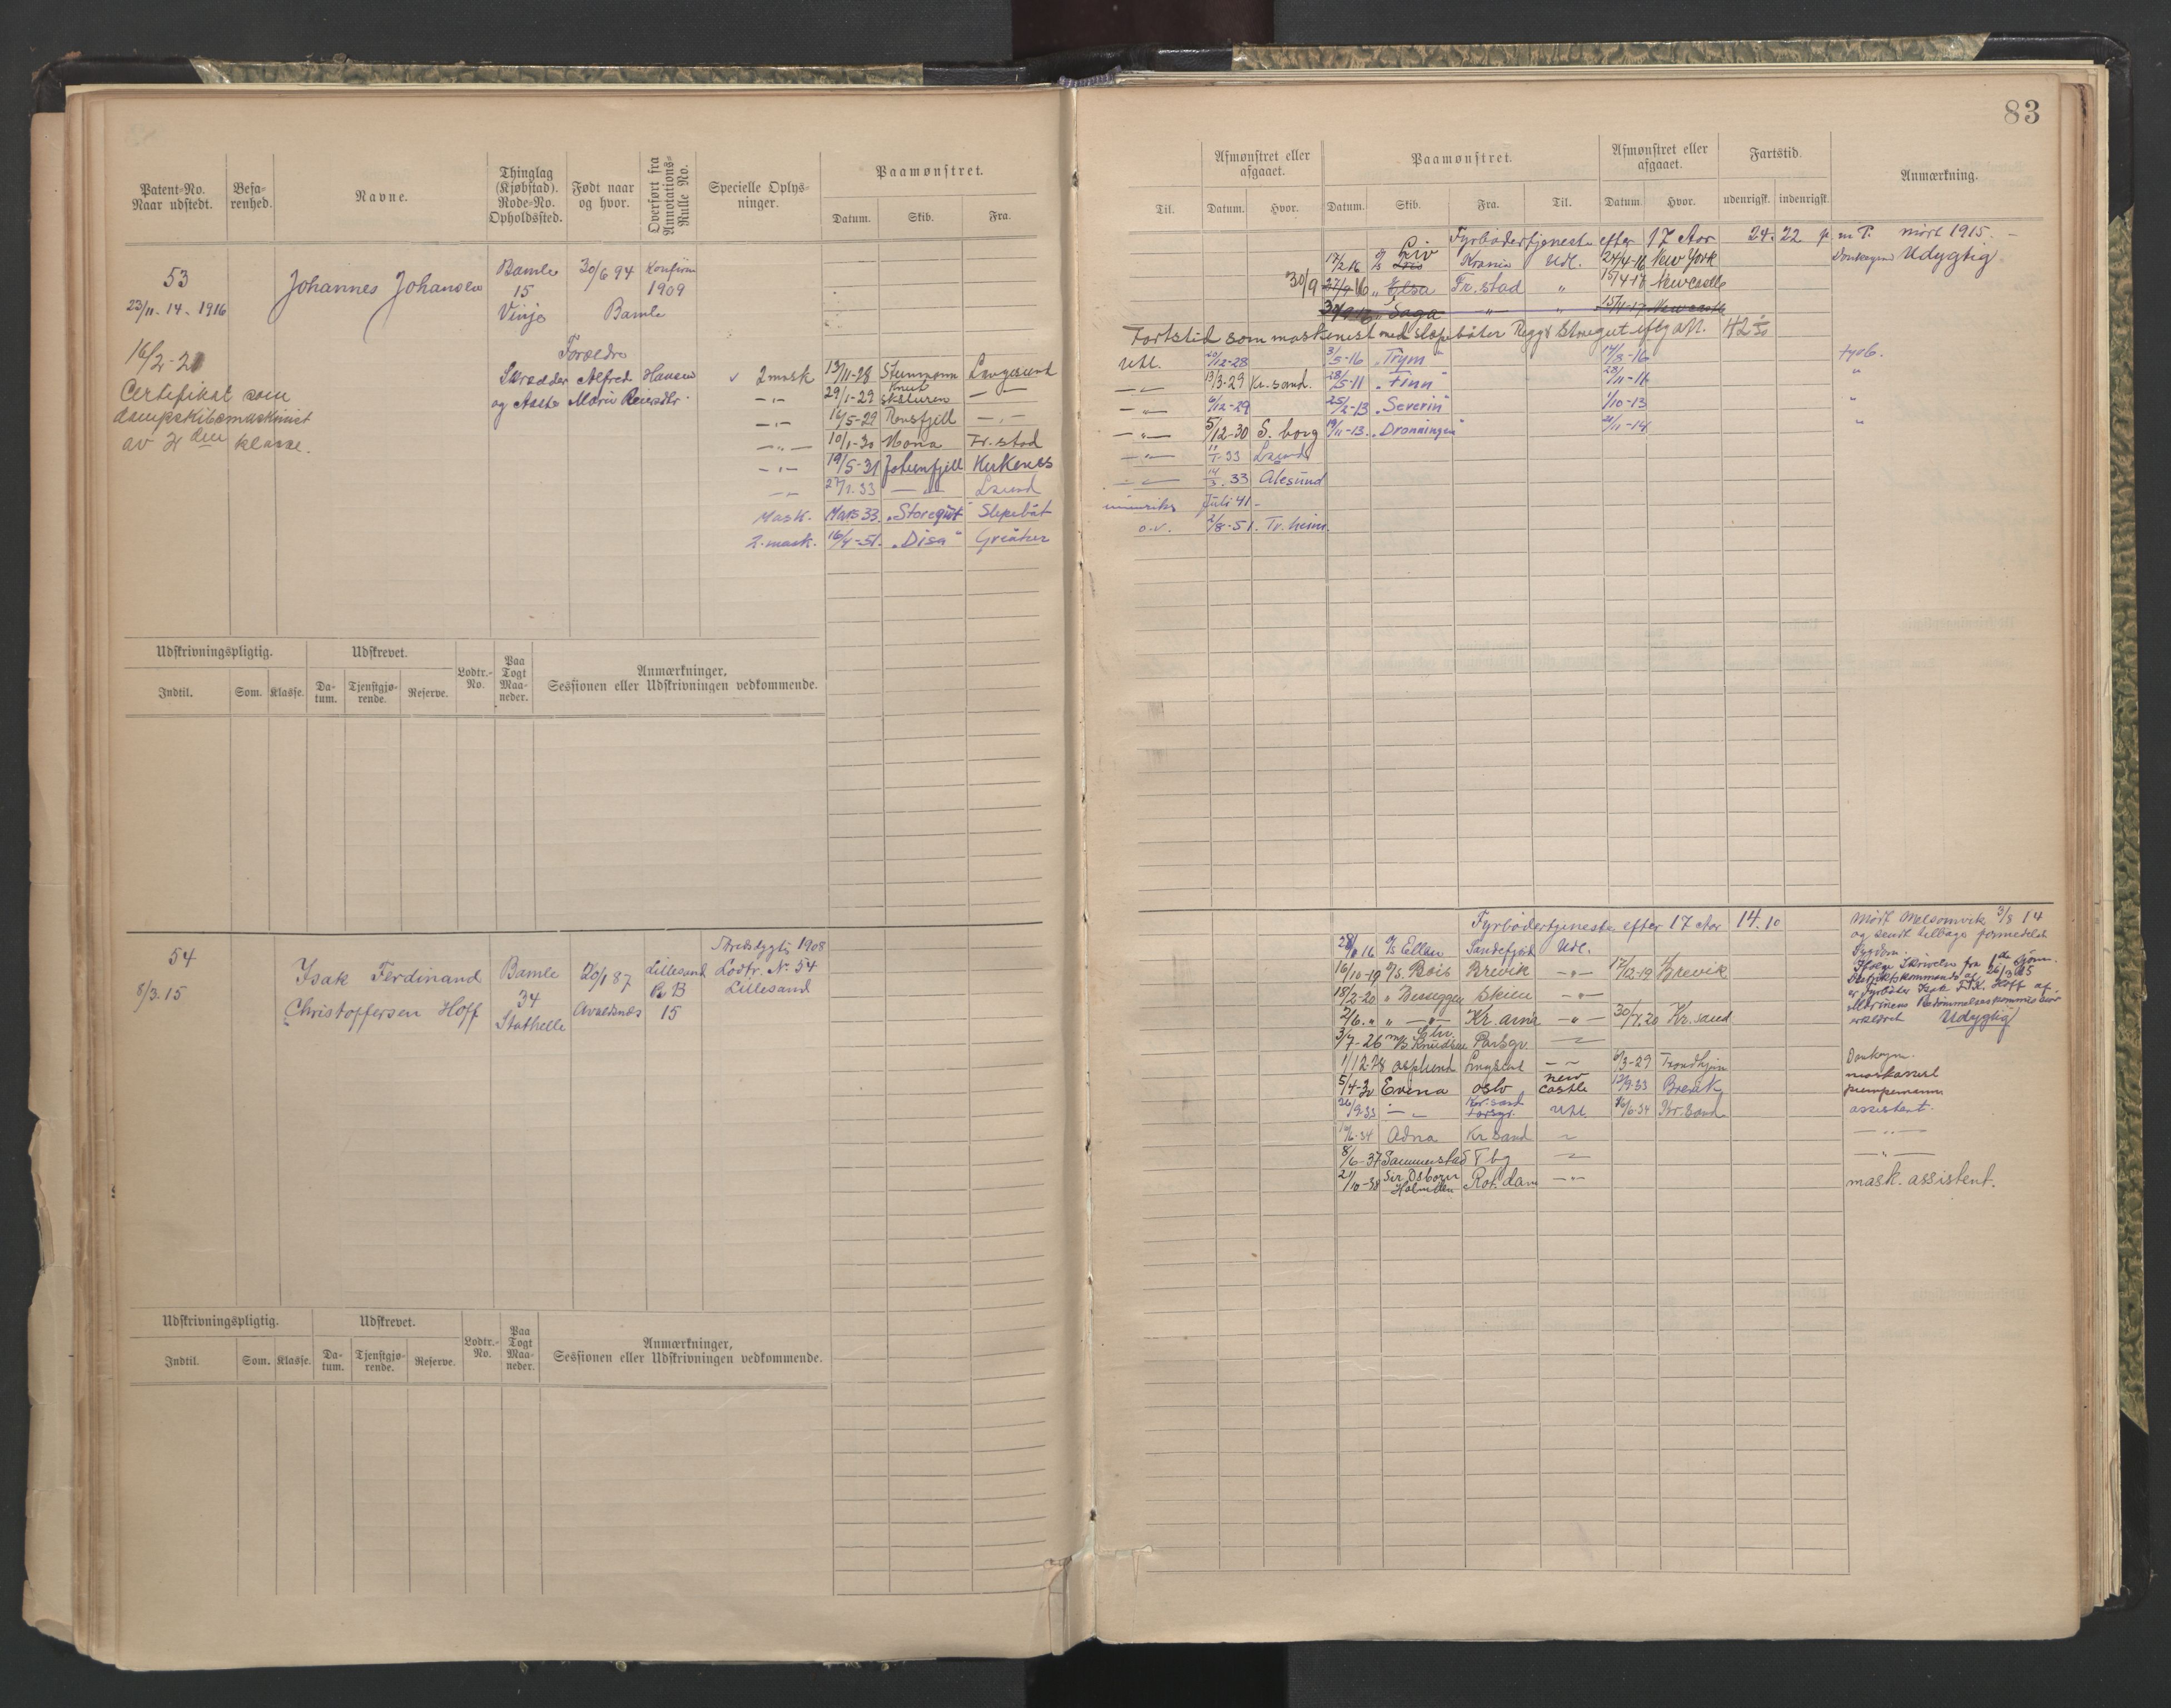 83
Patent-No. Naar udstedt.
Befarenhed.
Navne.
Thinglag (Kjøbstad). Rode-No. Opholdssted.
Født naar og hvor.
Overført fra Annotations-Rulle No.
Specielle Oplysninger.
Paamønstret.
Datum. Skib. Fra.
53
23/11-14-1916
Johannes Johansen
Bamle
15
Vinje
30/6 94
Bamle
Konfirm
1909
Forældre
Skrædder Alfred Hansen
og Aaste Marie
16/2-21
Certifikat som
dampskibsmaskinist
av II den klasse.
2 mask 13/11-28 Steinmann Langesund
— " — 29/1-29 Knut Skaluren — " —
— " — 16/5-29 Ronsfjell — " —
— " — 10/1-30 Mona Fr.stad
— " — 19/5-31 Johunfjell Kirkenes
— " — 27/1.33 — " — Lsund
Mask. Mars 33. "Storegut" Slepebåt
2. mask. 16/4-51. "Disa" Greåker
Udskrivningspligtig.
Udskrevet.
Lodtr.-No.
Paa Togt Maaneder.
Anmærkninger,
Sessionen eller Udskrivningen vedkommende.
Indtil. Som. Klasse. Datum. Tjenstgjørende. Reserve.
54
8/3.15
Isak Ferdinand
Christoffersen Hoff
Bamle
34
Stathelle
20/1 87
Lillesand
B
15
1908
Lodtr. No 54
Lillesand
Udskrivningspligtig.
Udskrevet.
Lodtr.-No.
Paa Togt Maaneder.
Anmærkninger,
Sessionen eller Udskrivningen vedkommende.
Indtil. Som. Klasse. Datum. Tjenstgjørende. Reserve.
Afmønstret eller afgaaet.
Paamønstret.
Afmønstret eller afgaaet.
Fartstid.
Anmærkning.
Til. Datum. Hvor. Datum. Skib. Fra. Til. Datum. Hvor. udenrigsk. indenrigsk.
Fyrbødertjeneste efter 17 Aar 24. 22 m P. mørt 1915.
17/2-16 Liv Udl. 24/4-16 New York Donkeym Udygtig
30/9 27/9 16 " Elsa Fr.stad " 15/4-17 Newcastle
30/9 16 " Saga — " — " 15/4-17 Newcastle
Fartstid som maskinist med slæpebåter
Utl. 20/12-28 3/5-16 "Trym" 14/8-16 fyrb.
— " — 13/3-29 Kr.sand. 28/5-11 "Finn" 28/11-11 "
— " — 6/12-29 25/2-13 "Severin" 1/10-13 "
— " — 5/12-30 S.borg 19/11-13. "Dronningen" 2/11-14 "
— " — 11/1-33 Lsund
— " — 14/3.33 Alesund
innenriks Juli 41-
o.v. 2/8-51. Tr.heim.
Fyrbødertjeneste efter 17 Aar 14.10
28/11 16 Ellen Sandefjord Udl.
16/10-19 Bris Brevik — " — 17/12-19 Brevik
18/2-20 " Besseggen Skien — " —
2/6. " " — " — Kr.amn — " — 30/7.20 Kr.sand
3/7-26 Elv. Knudsen Porsgr. — " —
1/12-28 Asplund Langesund — " — 6/3-29 Trondhjem
5/4-30 Evina Oslo New castle 12/9-33 Brevik
26/9.33 — " — Kr.sand Porsgr. Utl. 16/6-34 Kr.sand
19/6-34 Adna Kr sand — " —
8/6-37 Sammerstad Tbg — " —
21/10-38 Sir Osborn Holmden Rot.dam — " —
Mørt Melsomvik 3/8 14
og sendt tilbage formedelst
Sygdom.
Ifølge Skrivelse fra 1ste Sjøm.
Distriktskommando af 26/3 15
er Fyrbøder Isak F. K. Hoff af
Marinens Bedømmelseskommission
erklæret Udygtig
Donkeym.
maskassist
pumpemann
assistent.
— " —
— " —
mask. assistent.